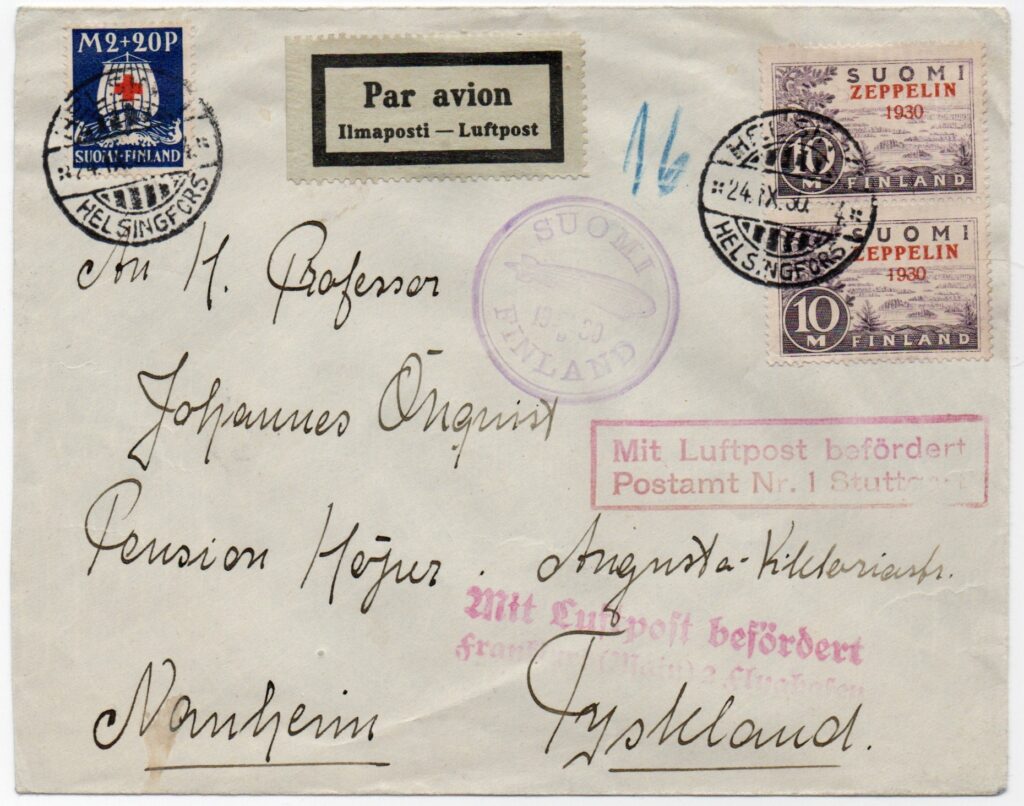 M2+20P
SUOMI-FINLAND
24.IX.30.
HELSINGFORS
Par avion
Ilmaposti — Luftpost
16
SUOMI
ZEPPELIN
1930
10
M FINLAND
24.IX.30. 4
HELSINGFORS
SUOMI
ZEPPELIN
1930
10
M FINLAND
SUOMI
FINLAND
An H. Professor
Johannes Öhquist
Mit Luftpost befördert
Postamt Nr. 1 Stuttgart
Pension Höjer. Augusta-Viktoriastr.
Mit Luftpost befördert
Frankfurt (Main) 2 Flughafen
Nauheim Tyskland.